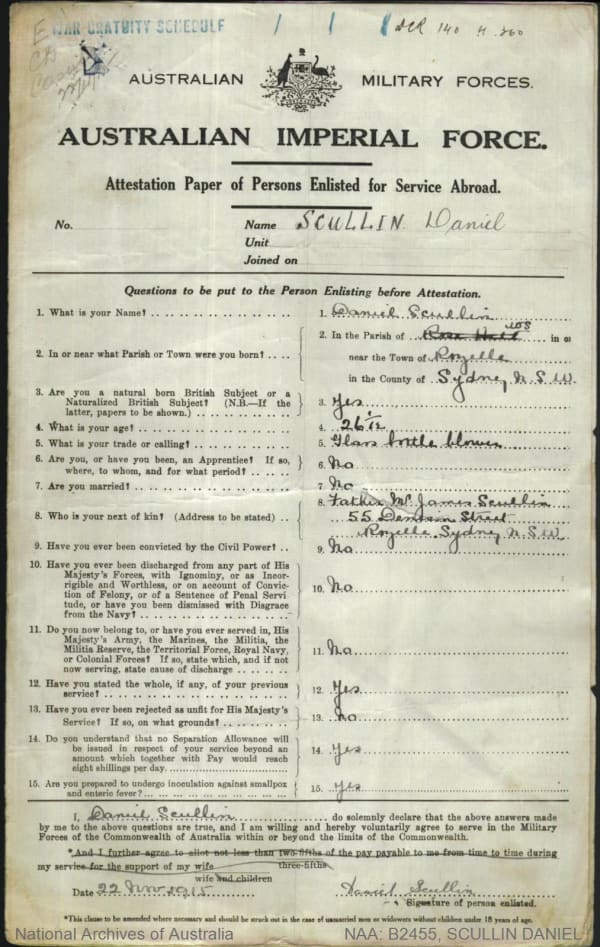 WAR GRATUITY SCHEDULE
AUSTRALIAN MILITARY FORCES.
AUSTRALIAN IMPERIAL FORCE.
Attestation Paper of Persons Enlisted for Service Abroad.
No. Name SCULLIN Daniel
Unit
Joined on
Questions to be put to the Person Enlisting before Attestation.
1. What is your Name? 1. Daniel Scullin
2. In or near what Parish or Town were you born? 2. In the Parish of in or
near the Town of Rozelle
in the County of Sydney N.S.W.
3. Are you a natural born British Subject or a
Naturalized British Subject? (N.B.—If the
latter, papers to be shown.) 3. Yes
4. What is your age? 4. 26 1/12
5. What is your trade or calling? 5. Glass bottle blower
6. Are you, or have you been, an Apprentice? If so,
where, to whom, and for what period? 6. No
7. Are you married? 7. No
8. Who is your next of kin? (Address to be stated) 8. Father Mr James Scullin
55 Denison Street
Rozelle Sydney N.S.W
9. Have you ever been convicted by the Civil Power? 9. No
10. Have you ever been discharged from any part of His
Majesty's Forces, with Ignominy, or as Incor-
rigible and Worthless, or on account of Convic-
tion of Felony, or of a Sentence of Penal Servi
tude, or have you been dismissed with Disgrace
from the Navy? 10. No
11. Do you now belong to, or have you ever served in, His
Majesty's Army, the Marines, the Militia, the
Militia Reserve, the Territorial Force, Royal Navy,
or Colonial Forces? If so, state which, and if not
now serving, state cause of discharge 11. No
12. Have you stated the whole, if any, of your previous
service? 12. Yes
13. Have you ever been rejected as unfit for His Majesty's
Service? If so, on what grounds? 13. No
14. Do you understand that no Separation Allowance will
be issued in respect of your service beyond an
amount which together with Pay would reach
eight shillings per day. 14. Yes
15. Are you prepared to undergo inoculation against smallpox
and enteric fever? 15. Yes
I, Daniel Scullin do solemnly declare that the above answers made
by me to the above questions are true, and I am willing and hereby voluntarily agree to serve in the Military
Forces of the Commonwealth of Australia within or beyond the limits of the Commonwealth.
*And I further agree to allot not less than two-fifths of the pay payable to me from time to time during
three-fifths
my service for the support of my wife
wife and children
Date 22 Nov 1915 Daniel Scullin
Signature of person enlisted.
*This clause to be amended where necessary and should be struck out in the case of unmarried men or widowers without children under 18 years of age.
National Archives of Australia NAA: B2455, SCULLIN DANIEL